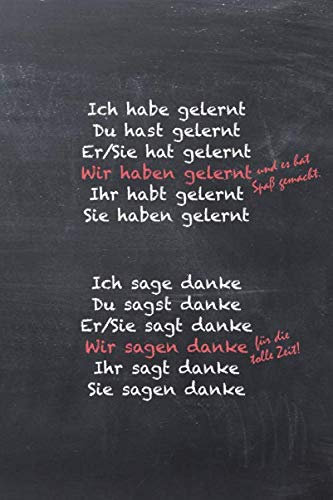 Ich habe gelernt
Du hast gelernt
Er/Sie hat gelernt
Wir haben gelernt
und es hat
Spaß gemacht.
Ihr habt gelernt
Sie haben gelernt
Ich sage danke
Du sagst danke
Er/Sie sagt danke
Wir sagen danke
für die
tolle Zeit!
Ihr sagt danke
Sie sagen danke